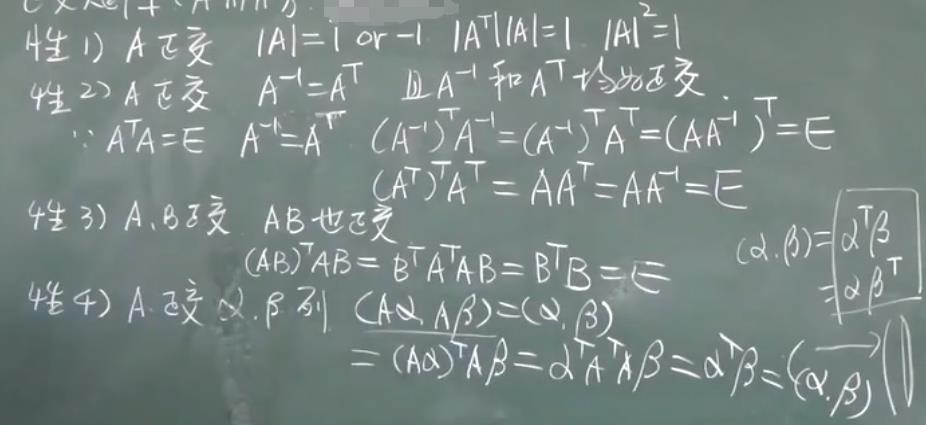 性1) A正交 |A|=1 or -1 |Aᵀ||A|=1 |A|²=1
性2) A正交 A⁻¹=Aᵀ 且A⁻¹和Aᵀ均为正交.
∵ AᵀA=E A⁻¹=Aᵀ (A⁻¹)ᵀA⁻¹=(A⁻¹)ᵀAᵀ=(AA⁻¹)ᵀ=E
(Aᵀ)ᵀAᵀ=AAᵀ=AA⁻¹=E
性3) A.B正交 AB也正交
(AB)ᵀAB=BᵀAᵀAB=BᵀB=E
(α.β)=αᵀβ
=αβᵀ
性4) A.正交 α.β列 (Aα,Aβ)=(α.β)
=(Aα)ᵀAβ=αᵀAᵀAβ=αᵀβ=(α.β)